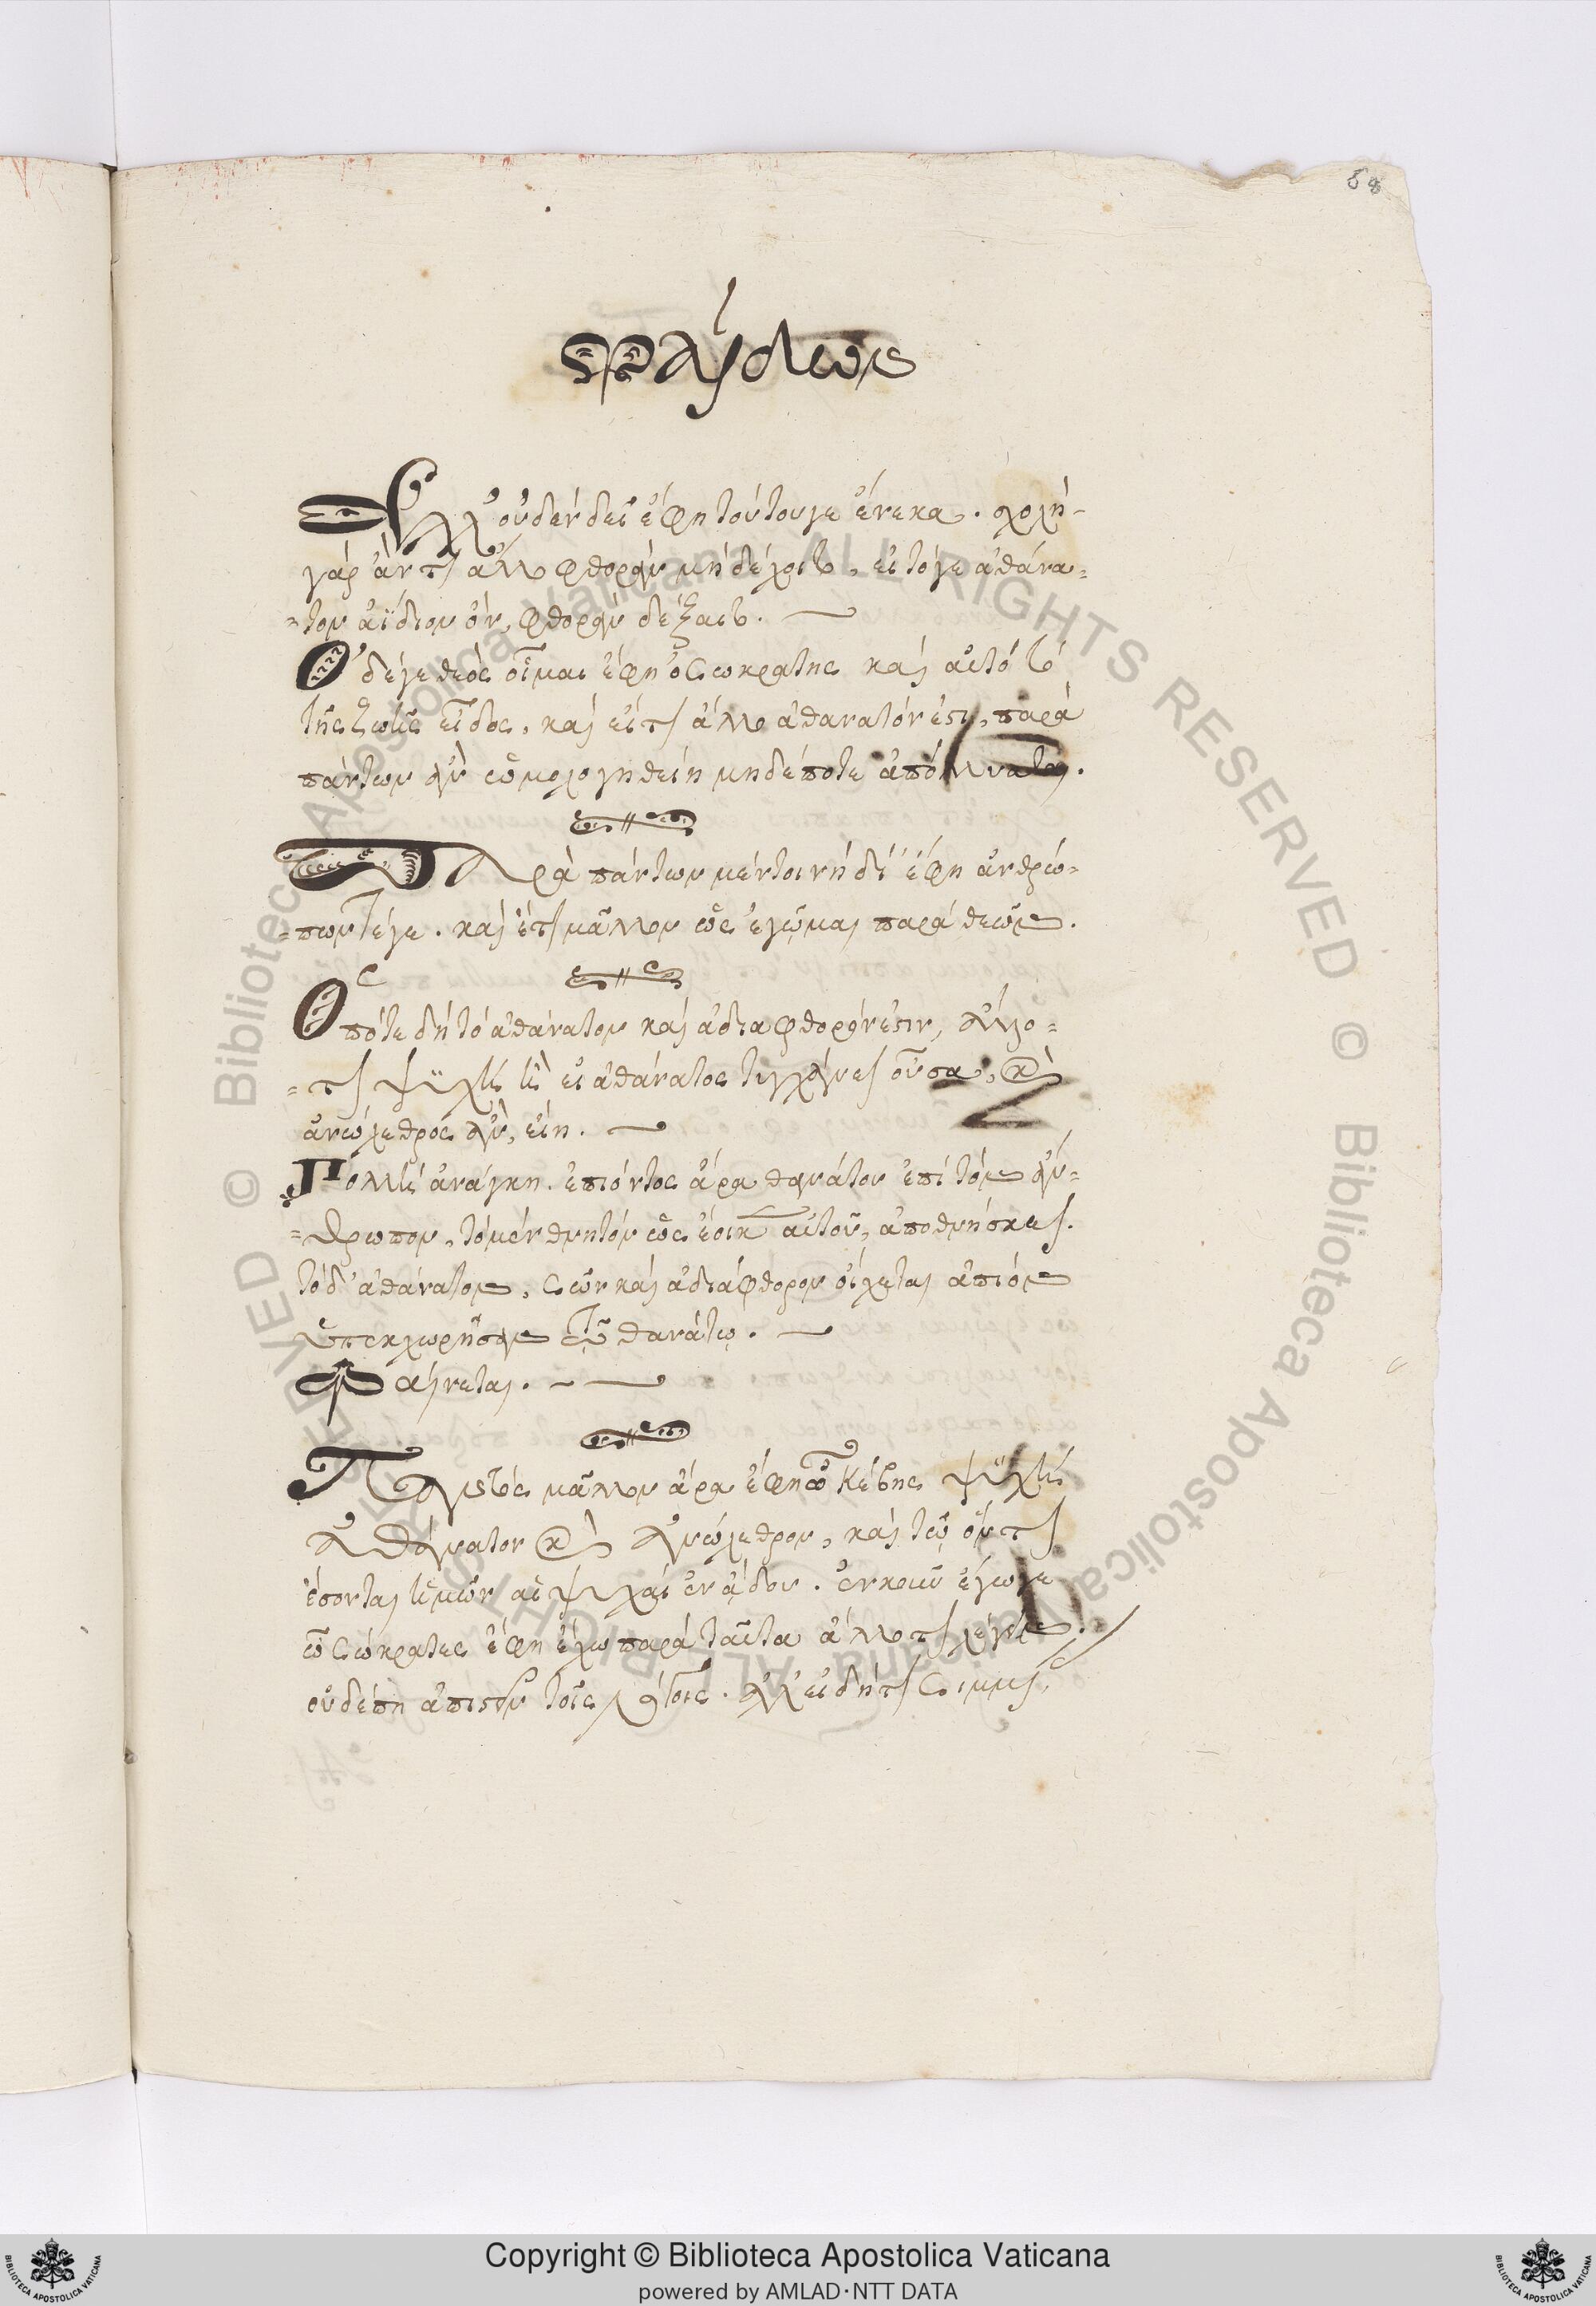 58
Φαίδων
Ἀλλ' οὐδὲν δεῖ ἔφη τούτου γε ἕνεκα. σχολῆ
γὰρ ἄν τι ἄλλο φθορὰν μὴ δέχοιτο, εἰ τό γε ἀθάνα=
=τον ἀΐδιον ὂν, φθορὰν δέξαιτο.
Ὁ δέ γε θεὸς οἶμαι ἔφη ὁ Σωκράτης καὶ αὐτὸ τὸ
τῆς ζωῆς εἶδος, καὶ εἴ τι ἄλλο ἀθάνατόν ἐστι, παρὰ
πάντων ἂν ὁμολογηθείη μηδέποτε ἀπόλλυσθαι.
Παρὰ πάντων μέντοι νὴ δί' ἔφη ἀνθρώ=
=πων τέ γε. καὶ ἔτι μᾶλλον ὡς ἐγῶμαι παρὰ θεῶν.
Ὁπότε δὴ τὸ ἀθάνατον καὶ ἀδιάφθορόν ἐστιν, ἄλλο=
=τι ψυχὴ ἢ εἰ ἀθάνατος τυγχάνει οὖσα, καὶ
ἀνώλεθρος ἂν, εἴη.
Πολλὴ ἀνάγκη. ἐπιόντος ἄρα θανάτου ἐπὶ τὸν ἄν=
=θρωπον, τὸ μὲν θνητὸν ὡς ἔοικεν αὐτοῦ, ἀποθνήσκει.
τὸ δ' ἀθάνατον, σῶν καὶ ἀδιάφθορον οἴχεται ἀπιὸν
ὑπεκχωρῆσαν τῷ θανάτῳ.
Φαίνεται.
Παντὸς μᾶλλον ἄρα ἔφη ὦ Κέβης ψυχὴ
ἀθάνατον καὶ ἀνώλεθρον, καὶ τῷ ὄντι
ἔσονται ἡμῶν αἱ ψυχαὶ ἐν ᾅδου. οὔκουν ἔγωγε
ὦ Σώκρατες ἔφη ἔχω παρὰ ταῦτα ἄλλο τι λέγειν.
οὐδέ πη ἀπιστεῖν τοῖς λόγοις. ἀλλ' εἰ δή τι Σιμμί
Copyright © Biblioteca Apostolica Vaticana
powered by AMLAD·NTT DATA